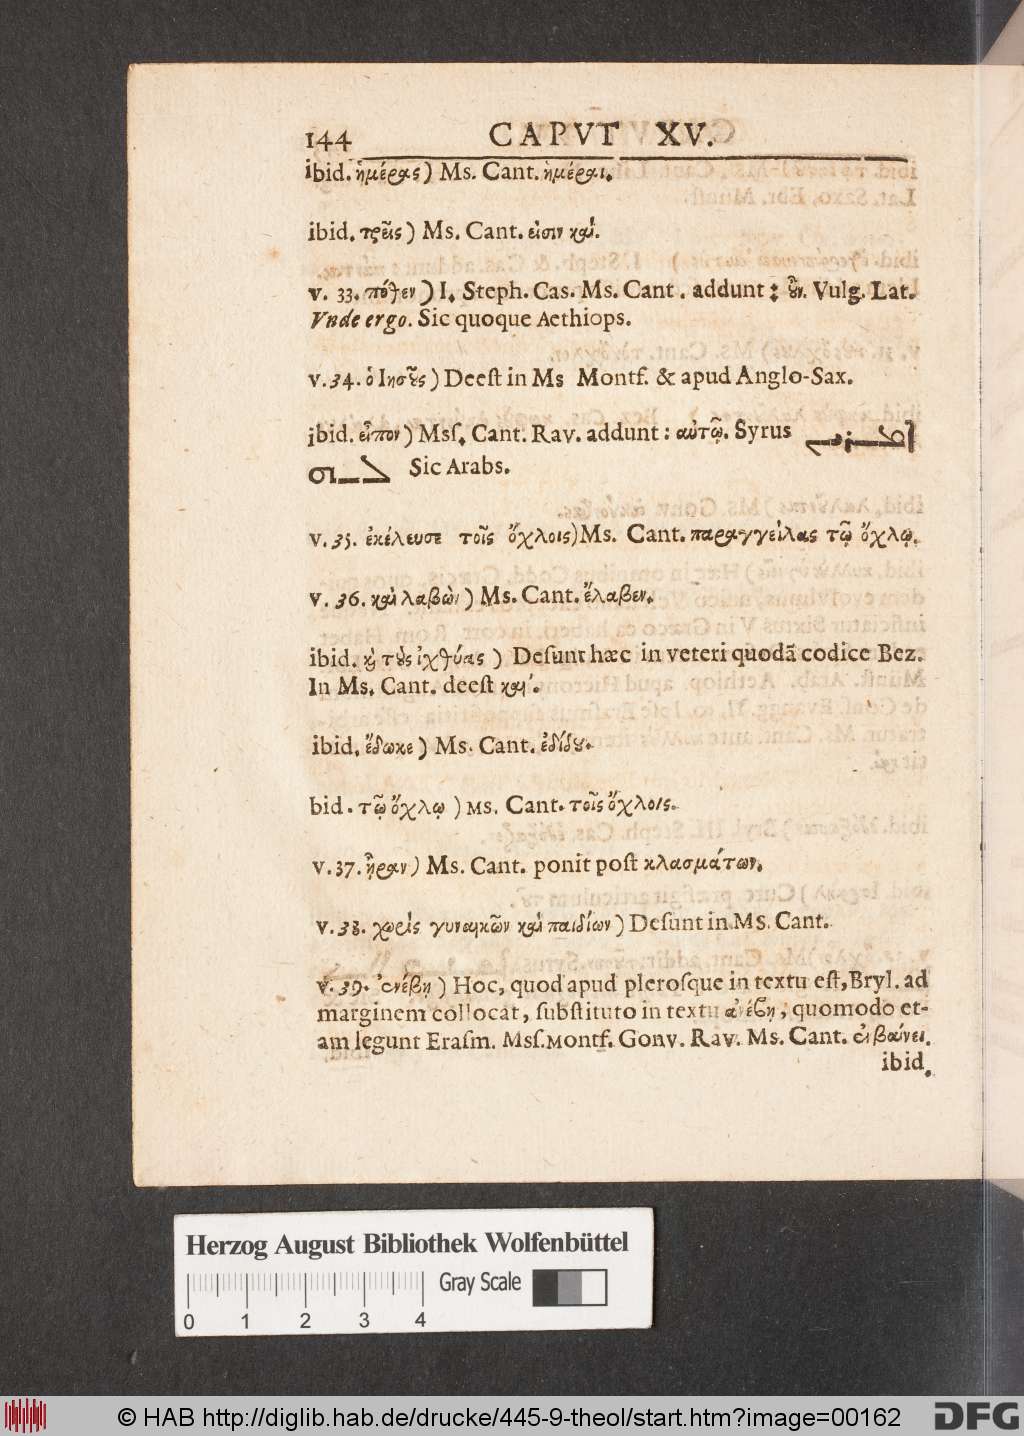 144 CAPVT XV.
ibid. ἡμέρας) Ms. Cant. ἡμέραι.
ibid. τρεῖς) Ms. Cant. εἰσιν καὶ.
v. 33. πόθεν) I. Steph. Cas. Ms. Cant. addunt: οὖν. Vulg. Lat.
Vnde ergo. Sic quoque Aethiops.
v. 34. ὁ Ιησοῦς) Deeſt in Ms Montf. & apud Anglo-Sax.
ibid. εἶπον) Msſ. Cant. Rav. addunt: αὐτῷ. Syrus
Sic Arabs.
v. 35. ἐκέλευσε τοῖς ὄχλοις) Ms. Cant. παραγγείλας τῷ ὄχλῳ.
v. 36. καὶ λαβὼν) Ms. Cant. ἔλαβεν.
ibid. καὶ τοὺς ἰχθύας) Deſunt hæc in veteri quodã codice Bez.
In Ms. Cant. deeſt καὶ.
ibid. ἔδωκε) Ms. Cant. ἐδίδου.
bid. τῷ ὄχλῳ) Ms. Cant. τοῖς ὄχλοις.
v. 37. ἦραν) Ms. Cant. ponit poſt κλασμάτων.
v. 38. χωρὶς γυναικῶν καὶ παιδίων) Deſunt in Ms. Cant.
v. 39. ἐνέβη) Hoc, quod apud pleroſque in textu eſt, Bryl. ad
marginem collocat, ſubſtituto in textu ἀνέβη, quomodo et-
am legunt Eraſm. Msſ. Montf. Gonv. Rav. Ms. Cant.
ibid.
Herzog August Bibliothek Wolfenbüttel
Gray Scale
0 1 2 3 4
© HAB http://diglib.hab.de/drucke/445-9-theol/start.htm?image=00162
DFG